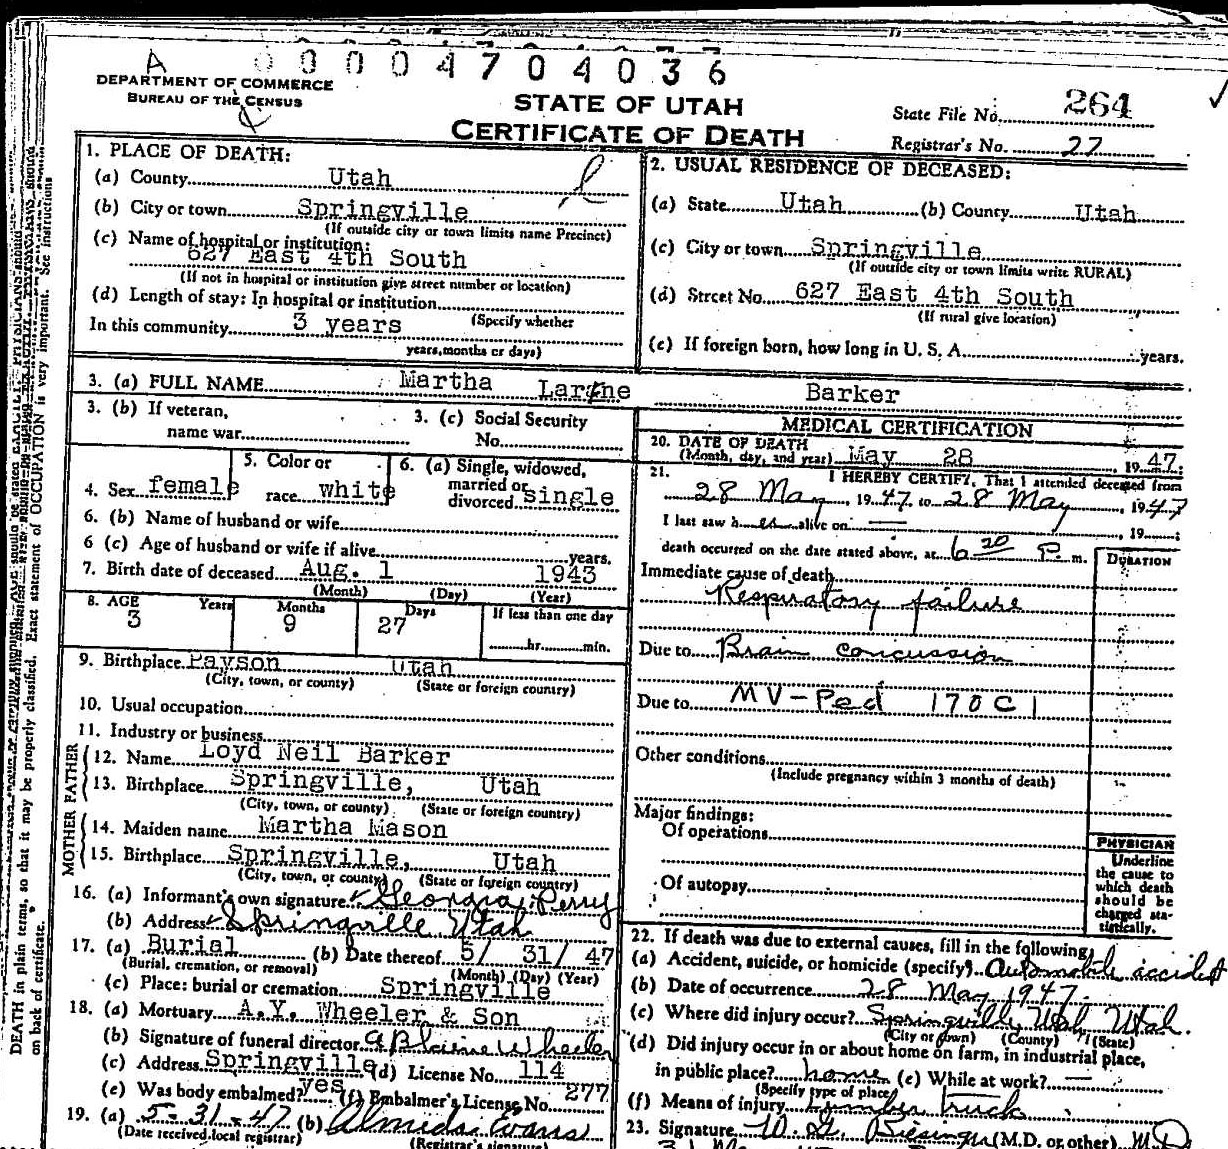 A 0 0 0 0 4 7 0 4 0 3 6
DEPARTMENT OF COMMERCE
BUREAU OF THE CENSUS
STATE OF UTAH
CERTIFICATE OF DEATH
State File No. 264
Registrar's No. 27
1. PLACE OF DEATH:
(a) County Utah
(b) City or town Springville
(If outside city or town limits name Precinct)
(c) Name of hospital or institution:
627 East 4th South
(If not in hospital or institution give street number or location)
(d) Length of stay: In hospital or institution
In this community 3 years (Specify whether
years, months or days)
2. USUAL RESIDENCE OF DECEASED:
(a) State Utah (b) County Utah
(c) City or town Springville
(If outside city or town limits write RURAL)
(d) Street No. 627 East 4th South
(If rural give location)
(e) If foreign born, how long in U. S. A. years.
3. (a) FULL NAME Martha Larene Barker
3. (b) If veteran,
name war
3. (c) Social Security
No.
4. Sex female
5. Color or
race white
6. (a) Single, widowed,
married or
divorced single
6. (b) Name of husband or wife
6 (c) Age of husband or wife if alive years.
7. Birth date of deceased Aug. 1 1943
(Month) (Day) (Year)
8. AGE Years Months Days If less than one day
3 9 27 hr. min.
9. Birthplace Payson Utah
(City, town, or county) (State or foreign country)
10. Usual occupation
11. Industry or business
FATHER
12. Name Loyd Neil Barker
13. Birthplace Springville, Utah
(City, town, or county) (State or foreign country)
MOTHER
14. Maiden name Martha Mason
15. Birthplace Springville, Utah
(City, town, or county) (State or foreign country)
16. (a) Informant's own signature Georgia Perry
(b) Address Springville Utah
17. (a) Burial (b) Date thereof 5/ 31/ 47
(Burial, cremation, or removal) (Month) (Day) (Year)
(c) Place: burial or cremation Springville
18. (a) Mortuary A.Y. Wheeler & Son
(b) Signature of funeral director A Blaine Wheeler
(c) Address Springville (d) License No. 114
(e) Was body embalmed? yes (f) Embalmer's License No. 277
19. (a) 5-31-47 (b) Almeda Evans
(Date received local registrar) (Registrar's signature)
MEDICAL CERTIFICATION
20. DATE OF DEATH
(Month, day, and year) May 28, 1947
21. I HEREBY CERTIFY, That I attended deceased from
28 May, 1947 to 28 May, 1947
I last saw her alive on — , 19 ;
death occurred on the date stated above, at 6 20 P. m.
DURATION
Immediate cause of death
Respiratory failure
Due to Brain concussion
Due to MV-Ped 170C1
Other conditions
(Include pregnancy within 3 months of death)
Major findings:
Of operations
Of autopsy
PHYSICIAN
Underline
the cause to
which death
should be
charged sta-
tistically.
22. If death was due to external causes, fill in the following:
(a) Accident, suicide, or homicide (specify) Automobile accident
(b) Date of occurrence 28 May 1947
(c) Where did injury occur? Springville, Utah, Utah.
(City or town) (County) (State)
(d) Did injury occur in or about home on farm, in industrial place,
in public place? home (e) While at work? —
(Specify type of place)
(f) Means of injury Lumber truck
23. Signature (M.D. or other) M.D.
DEATH in plain terms, so that it may be properly classified. Exact statement of OCCUPATION is very important. See instructions
on back of certificate.